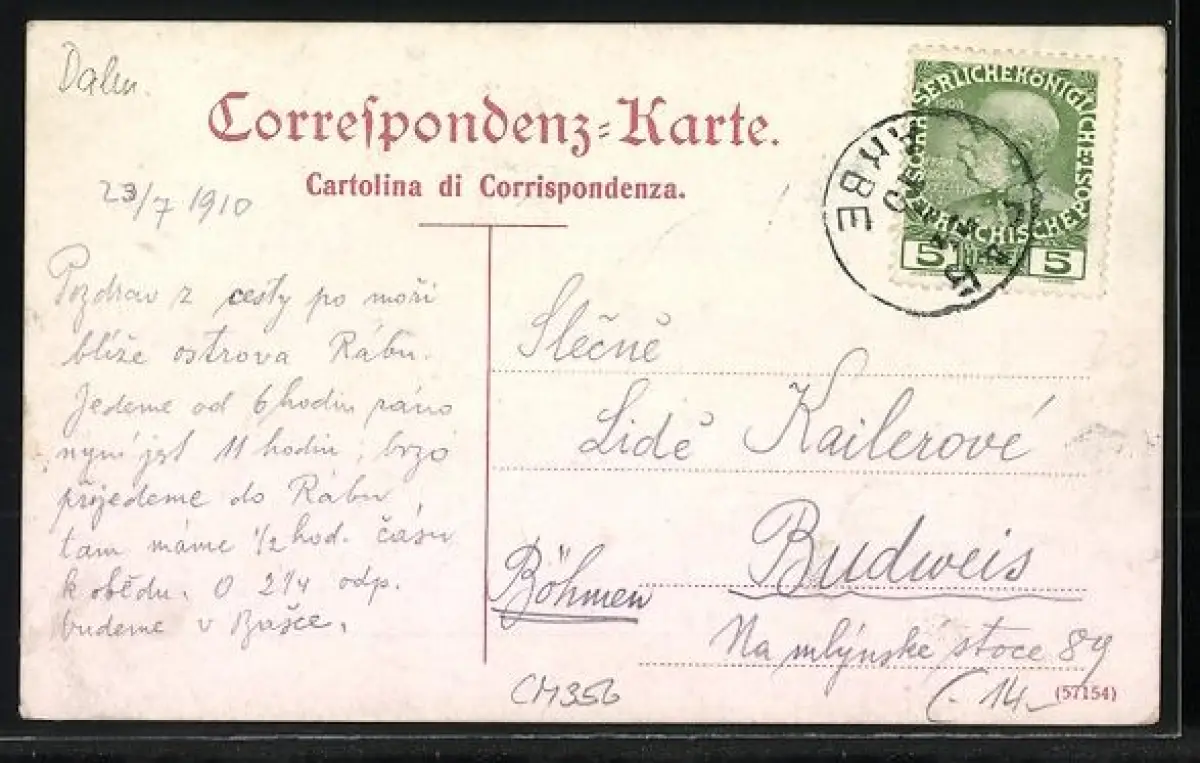 Dalm.
Correspondenz-Karte.
Cartolina di Corrispondenza.
23/7 1910
KAISERLICHE KÖNIGLICHE ÖSTERREICHISCHE POST
1908
5 HELLER 5
Pozdrav z cesty po moři
blíže ostrova Rábu.
Jedeme od 6 hodin ráno
nyní jest 11 hodin, brzo
přijedeme do Rábu,
tam máme 1/2 hod. času
k obědu. O 2 1/4 odp.
budeme v Bašce.
Slečně
Lidě Kailerové
Budweis
Böhmen
Na mlýnské stoce 89
CM356
14.-
(57154)